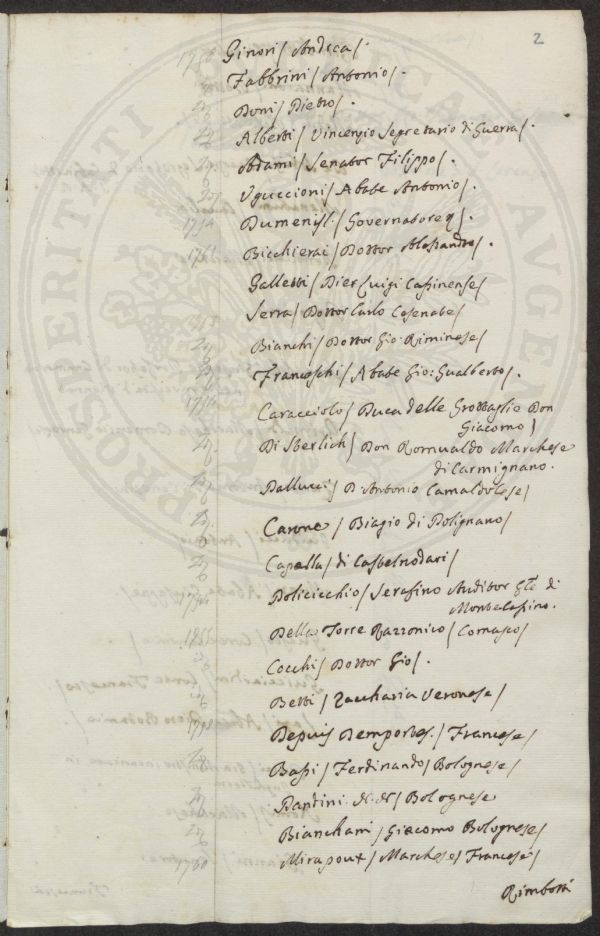 2
Ginori / Andrea /.
Fabbrini / Antonio /.
Doni / Pietro /.
Alberti / Vincenzio Segretario di Guerra /.
Adami / Senator Filippo /.
Uguccioni / Abate Antonio /.
Dumenil. / Governatore
Bicchierai / Dottor Alessandro /.
Galletti / Pier Luigi Casinense /
Serra / Dottor Carlo Cesenate /
Bianchi / Dottor Gio: Riminese /
Franceschi / Abate Gio: Gualberto /.
Caracciolo / Duca delle Grottaglie Don
Giacomo /
Di Sterlich / Don Romualdo Marchese
di Carmignano.
Pallucci / D: Antonio Camaldolese /
Carone / Biagio di Polignano /
Capella / di Castelnodari /
Policicchio / Serafino Auditor Gle di
Montecasino.
Della Torre Razzonico / Comasco /
Cocchi / Dottor Gio /.
Betti / Zaccharia Veronese /
Depuis Demportes. / Francese /
Bassi / Ferdinando / Bolognese /
Pantini. N. N / Bolognese
Bianchani / Giacomo Bolognese /
Mirapoux / Marchese / Francese /
Rimbotti